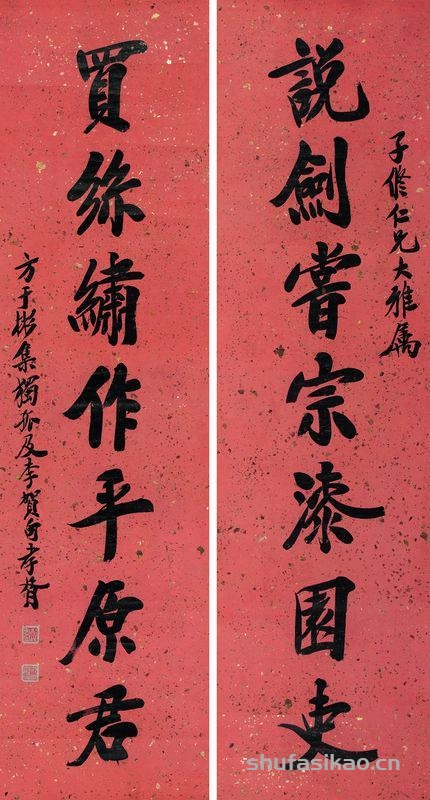 子修仁兄大雅属
說劍嘗宗漆園吏
買絲繡作平原君
方于彬集獨孤及李賀句孝胥
shufasikao.cn